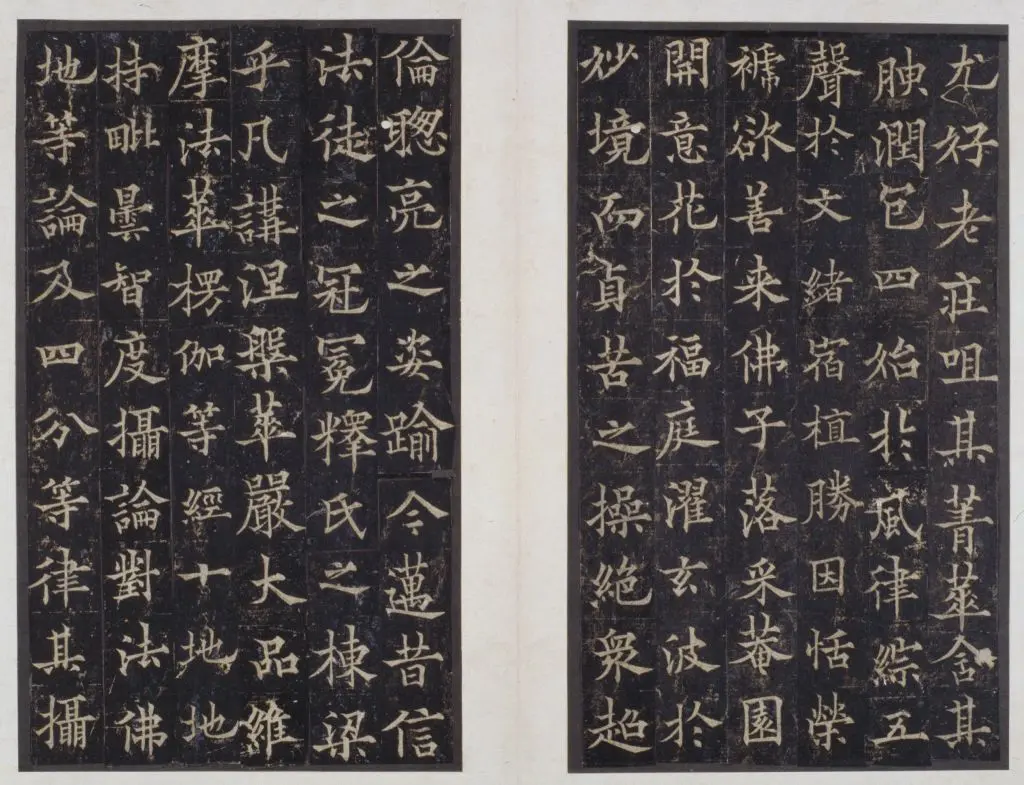 尤好老莊咀其菁華含其
腴潤包四始於風律綜五
聲於文緒宿植勝因恬榮
褫欲善来佛子落采菴園
開意花於福庭濯玄波於
妙境而貞苦之操絕衆超
倫聰亮之姿踰今邁昔信
法徒之冠冕釋氏之棟梁
乎凡講涅槃華嚴大品維
摩法華楞伽等經十地地
持毗曇智度攝論對法佛
地等論及四分等律其攝